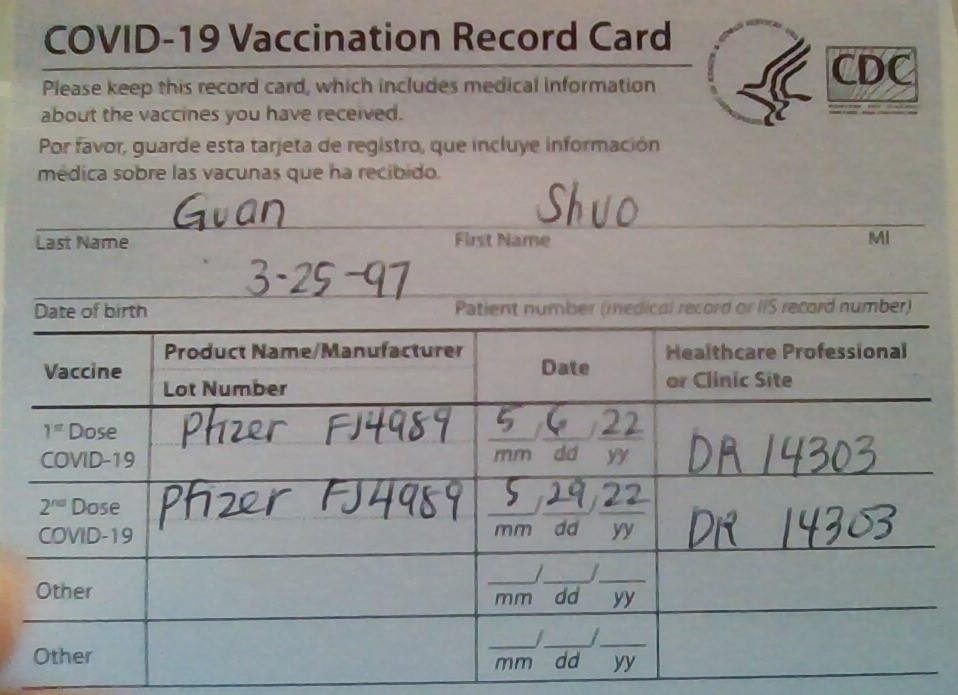 COVID-19 Vaccination Record Card
CDC
Please keep this record card, which includes medical information
about the vaccines you have received.
Por favor, guarde esta tarjeta de registro, que incluye información
médica sobre las vacunas que ha recibido.
Guan Shuo
Last Name First Name MI
3-25-97
Date of birth Patient number (medical record or IIS record number)
Vaccine Product Name/Manufacturer Date Healthcare Professional
Lot Number or Clinic Site
1st Dose Pfizer FJ4989 5/6/22 DR 14303
COVID-19 mm dd yy
2nd Dose Pfizer FJ4989 5/29/22 DR 14303
COVID-19 mm dd yy
Other __/__/__
mm dd yy
Other __/__/__
mm dd yy